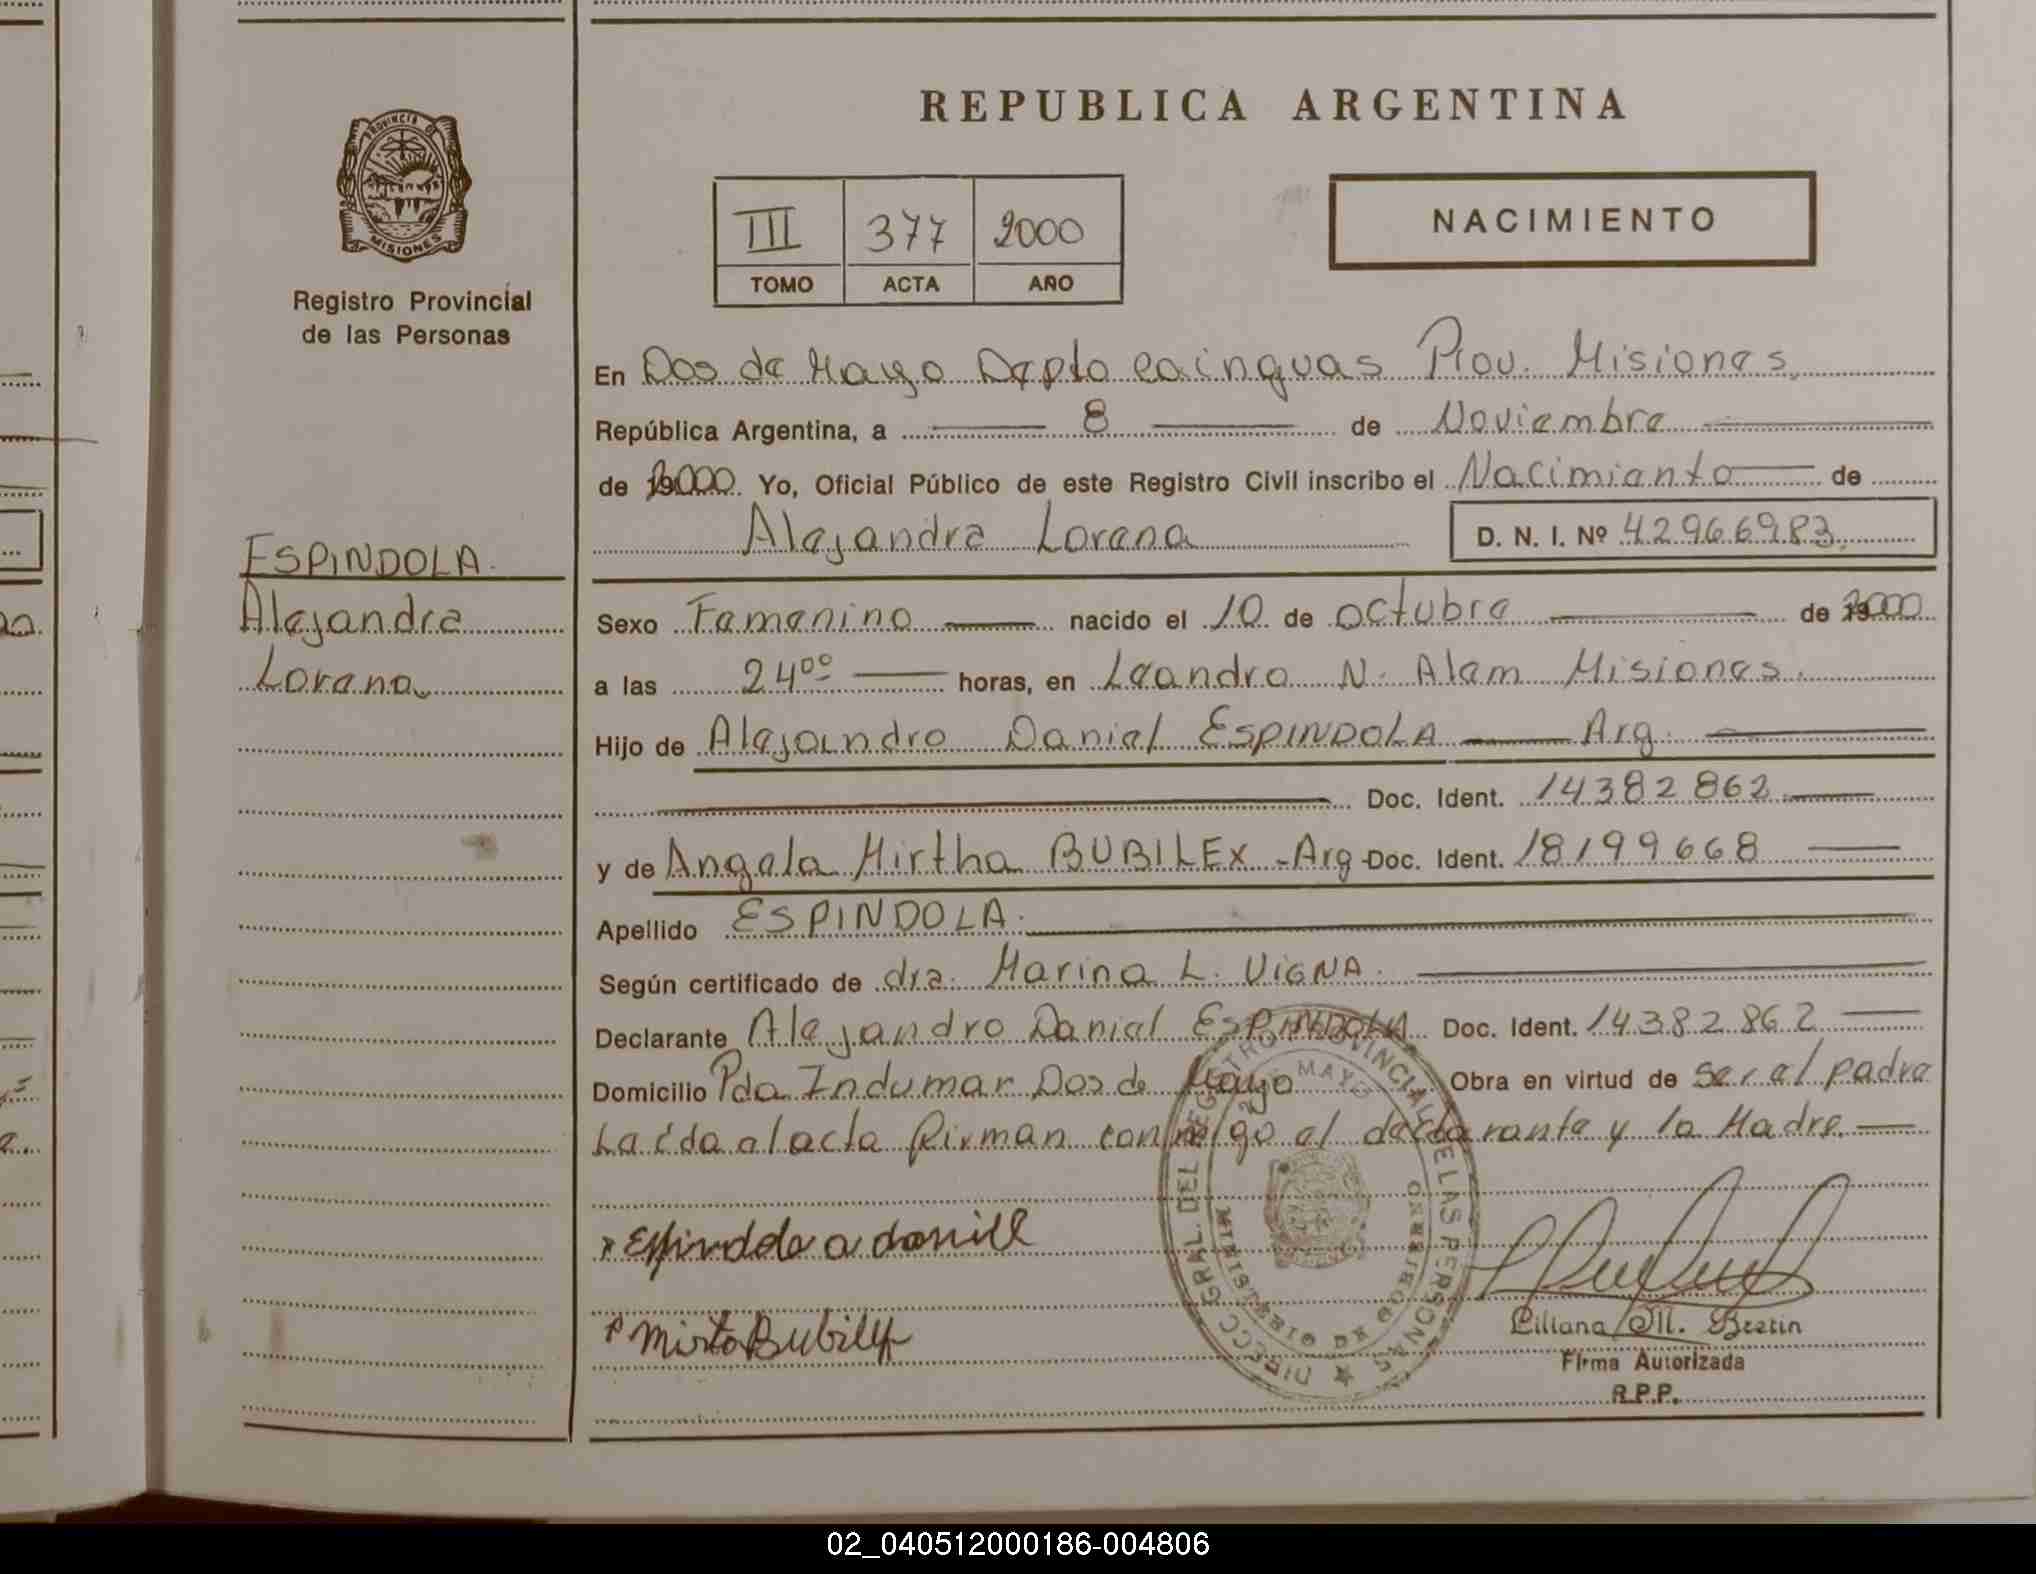 REPUBLICA ARGENTINA
PROVINCIA DE
MISIONES
Registro Provincial
de las Personas
III 377 2000
TOMO ACTA AÑO
NACIMIENTO
En Dos de Mayo Depto Cainguas Prov. Misiones.
República Argentina, a 8 de Noviembre
de 2000. Yo, Oficial Público de este Registro Civil inscribo el Nacimiento de
Alejandra Lorena D. N. I. Nº 42966983.
ESPINDOLA.
Alejandra
Lorena.
Sexo Femenino nacido el 10 de octubre de 2000
a las 24⁰⁰ horas, en Leandro N. Alem Misiones.
Hijo de Alejandro Daniel ESPINDOLA Arg.
Doc. Ident. 14382862
y de Angela Mirtha BUBILEX - Arg - Doc. Ident. 18199668
Apellido ESPINDOLA.
Según certificado de dra. Marina L. VIGNA.
Declarante Alejandro Daniel ESPINDOLA Doc. Ident. 14382862
Domicilio Pda Indumar Dos de Mayo Obra en virtud de ser el padre
Leída el acta firman conmigo el declarante y la Madre.
Espindola a daniel
Mirta Bubilex
DIRECC. GRAL. DEL REGISTRO PROVINCIAL DE LAS PERSONAS
2 DE MAYO
MINISTERIO DE GOBIERNO
Liliana M.
Firma Autorizada
R.P.P.
02_040512000186-004806